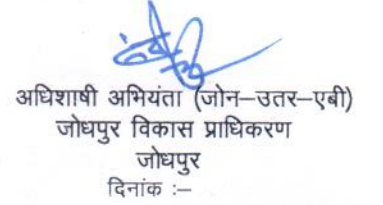 अधिशाषी अभियंता (जोन–उतर–एबी)
जोधपुर विकास प्राधिकरण
जोधपुर
दिनांक :–